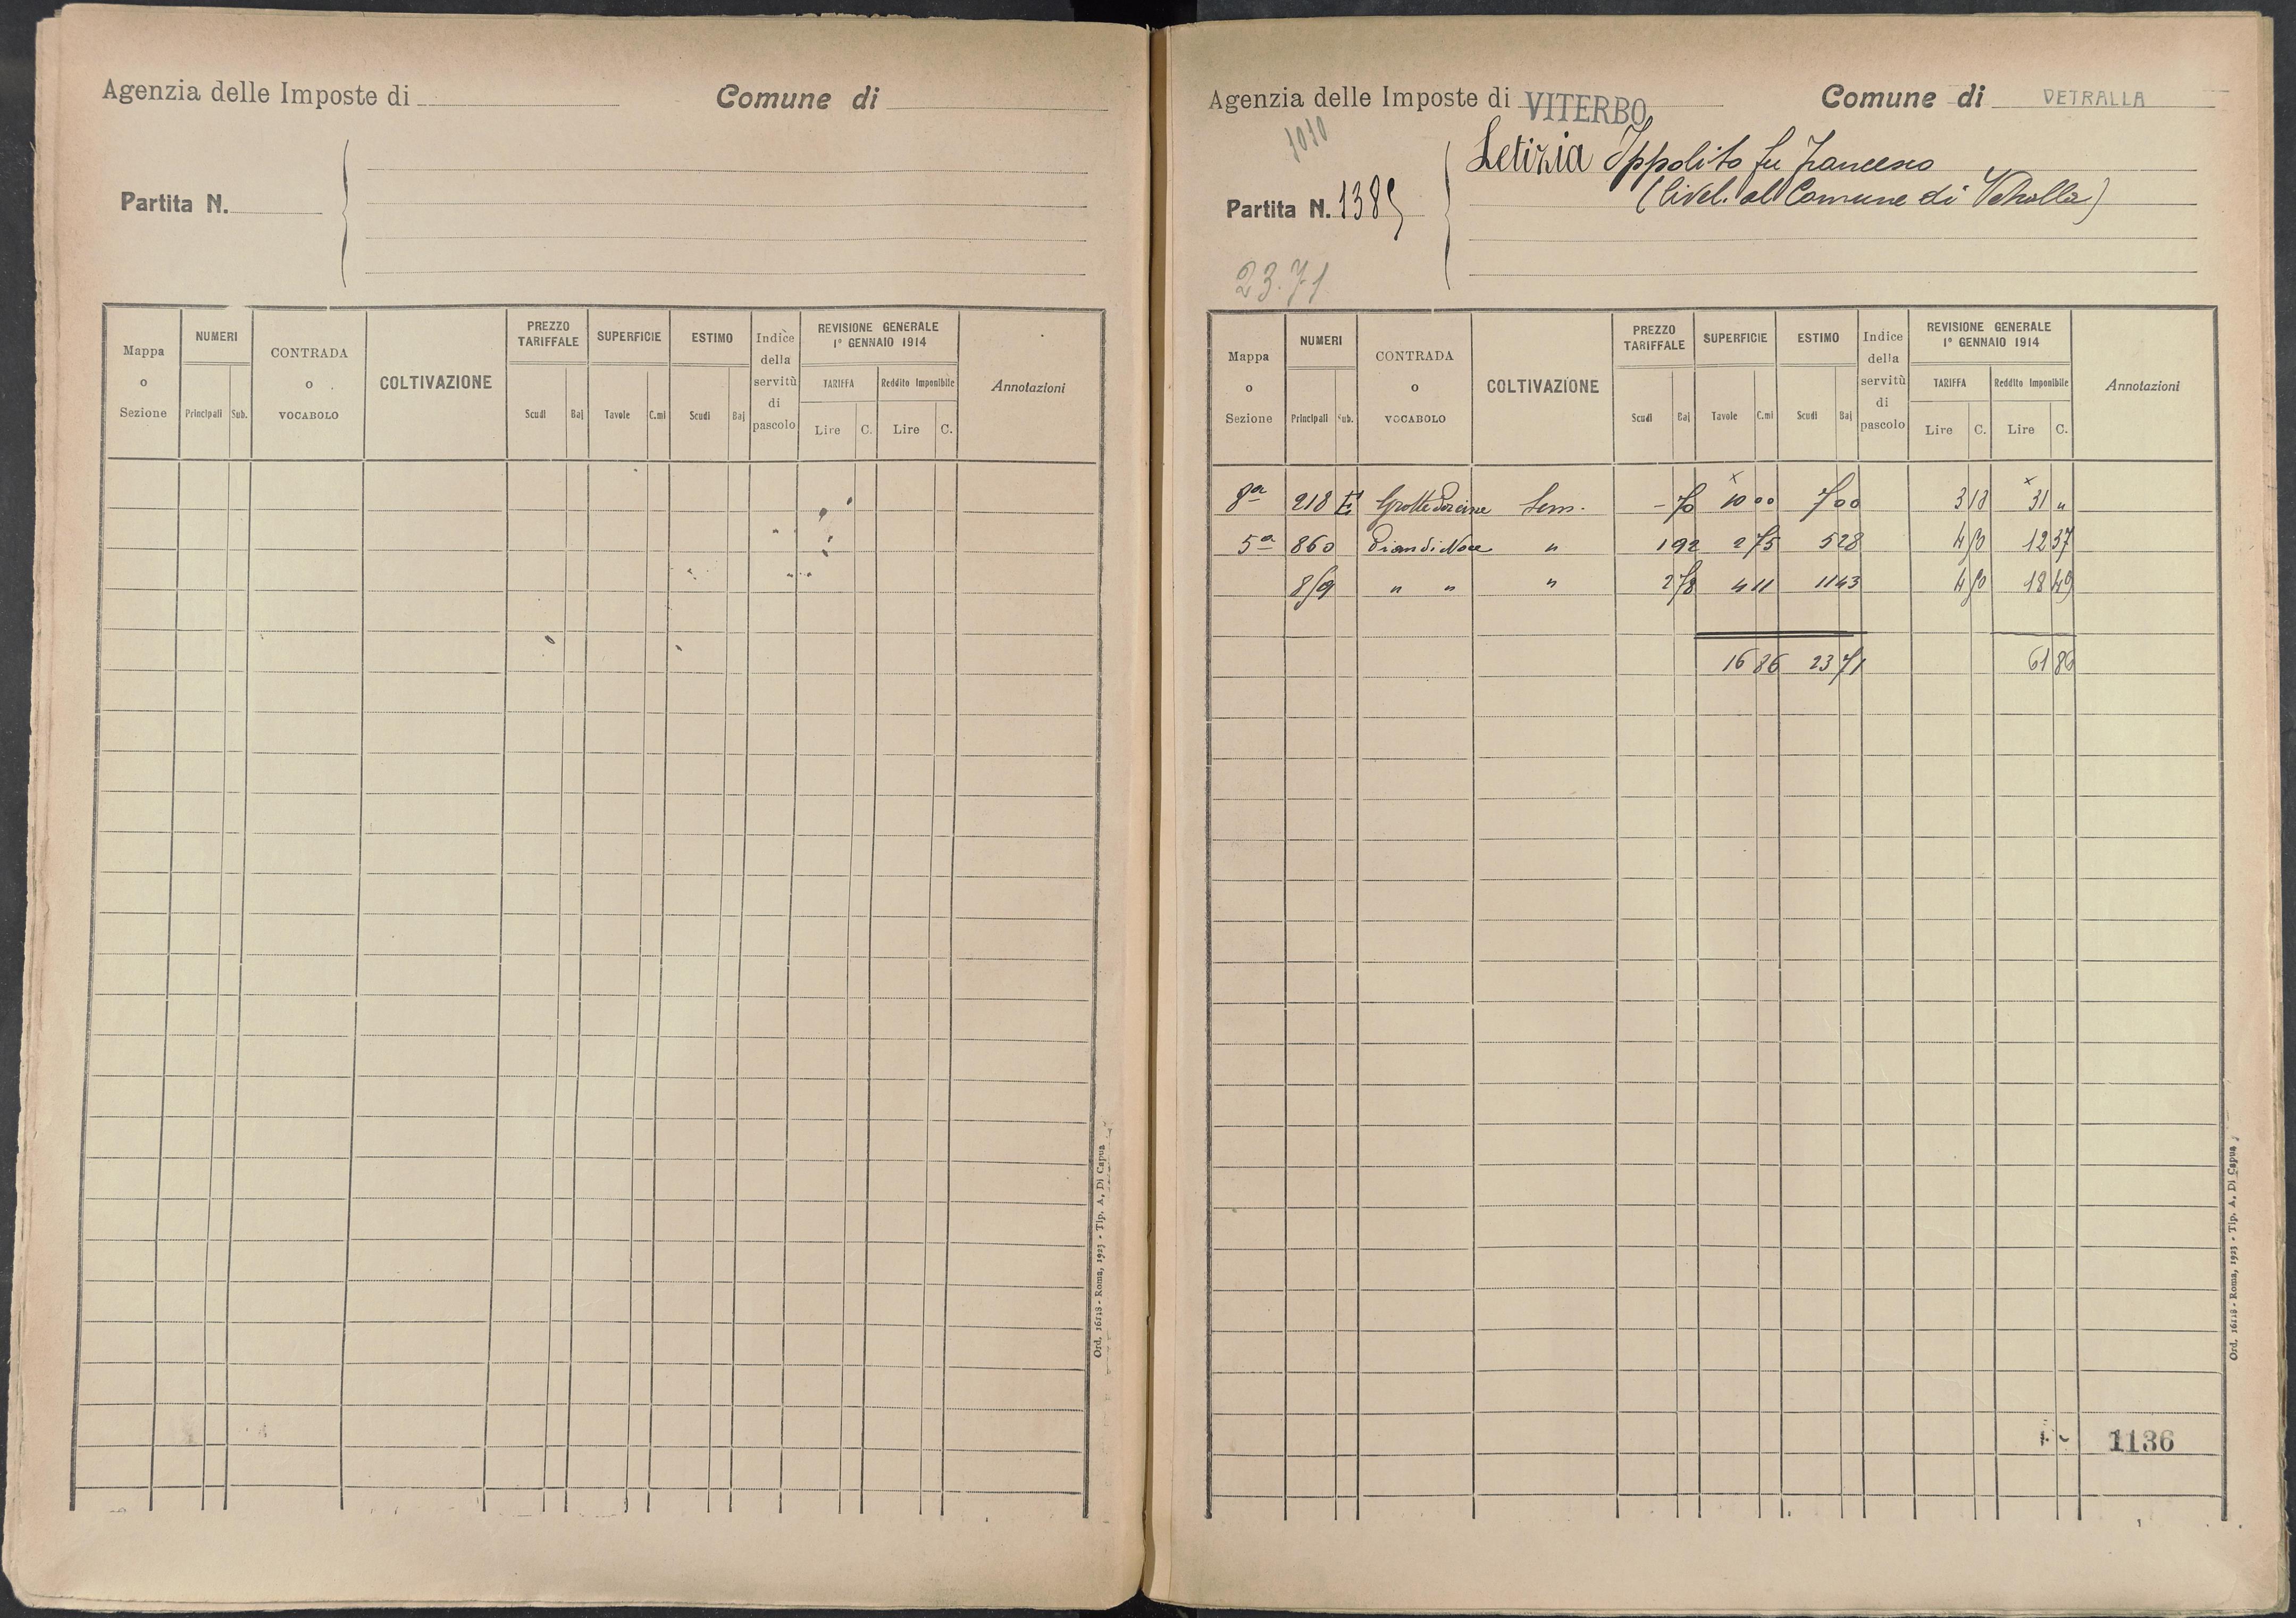 Agenzia delle Imposte di
Comune di
Partita N.
Mappa o Sezione
NUMERI
Principali Sub.
CONTRADA o VOCABOLO
COLTIVAZIONE
PREZZO TARIFFALE
Scudi Baj
SUPERFICIE
Tavole C.mi
ESTIMO
Scudi Baj
Indice della servitù di pascolo
REVISIONE GENERALE 1° GENNAIO 1914
TARIFFA Reddito Imponibile
Lire C. Lire C.
Annotazioni
Ord. 16118 - Roma, 1923 - Tip. A. Di Capua
Agenzia delle Imposte di VITERBO
Comune di VETRALLA
1010
Letizia Ippolito fu Francesco
(livel. al Comune di Vetralla)
Partita N. 1385
23.71
Mappa o Sezione
NUMERI
Principali Sub.
CONTRADA o VOCABOLO
COLTIVAZIONE
PREZZO TARIFFALE
Scudi Baj
SUPERFICIE
Tavole C.mi
ESTIMO
Scudi Baj
Indice della servitù di pascolo
REVISIONE GENERALE 1° GENNAIO 1914
TARIFFA Reddito Imponibile
Lire C. Lire C.
Annotazioni
8a 218 E Grotte Porcine Sem. - 70 10 00 7 00 3 10 31 "
5a 860 Pian di Noce " 1 92 2 75 5 28 4 50 12 37
859 " " " 2 78 4 11 11 43 4 50 18 49
16 86 23 71 61 86
1136
Ord. 16118 - Roma, 1923 - Tip. A. Di Capua